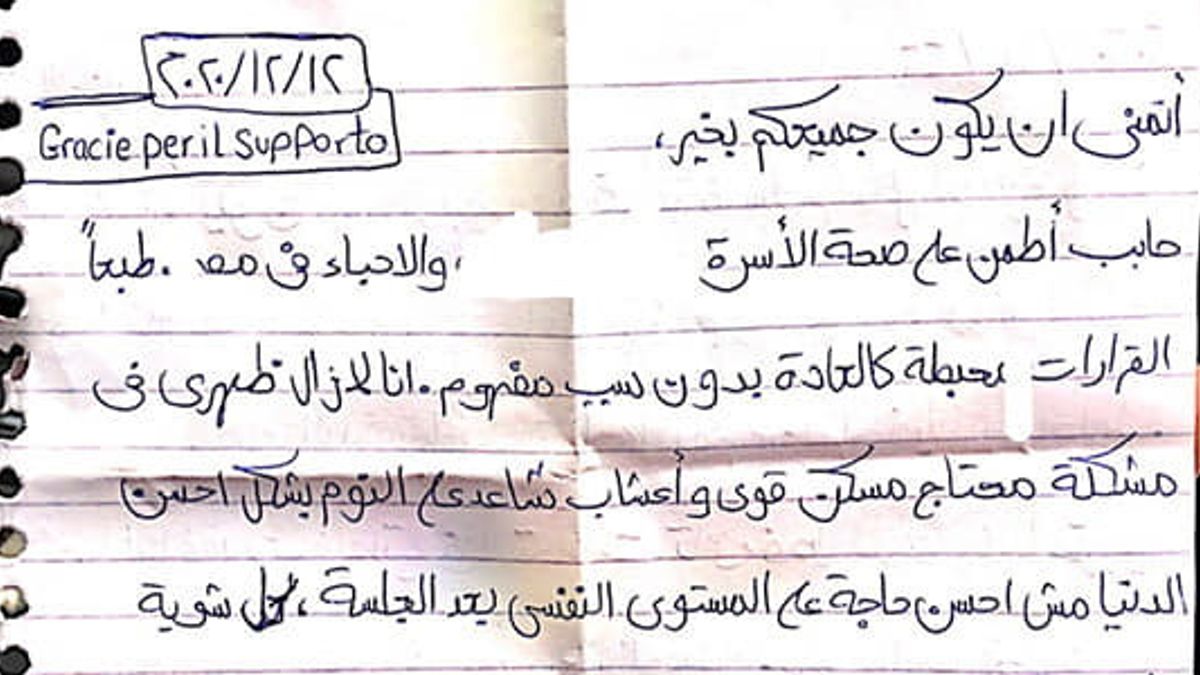 ٢٠٢٠/١٢/١٢
Gracie per il Supporto
أتمنى ان يكون جميعكم بخير،
حابب أطمن على صحة الأسرة ، والاحباء فى مصر . طبعاً
القرارات محبطة كالعادة بدون سبب مفهوم . انا لازال ظهرى فى
مشكلة محتاج مسكن قوى وأعشاب تساعدى على النوم بشكل احسن
الدنيا مش احسن حاجة على المستوى النفسى بعد الجلسة ، كل شوية